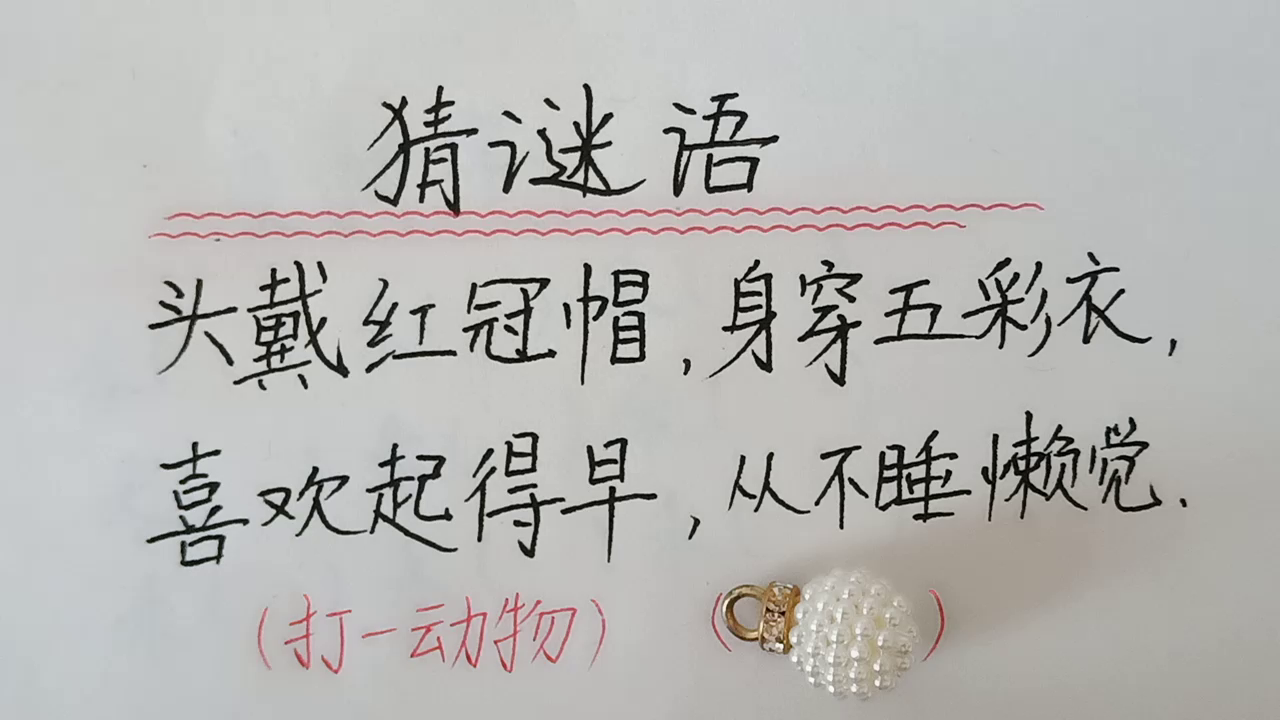 猜谜语
头戴红冠帽,身穿五彩衣,
喜欢起得早,从不睡懒觉.
(打一动物) ( )